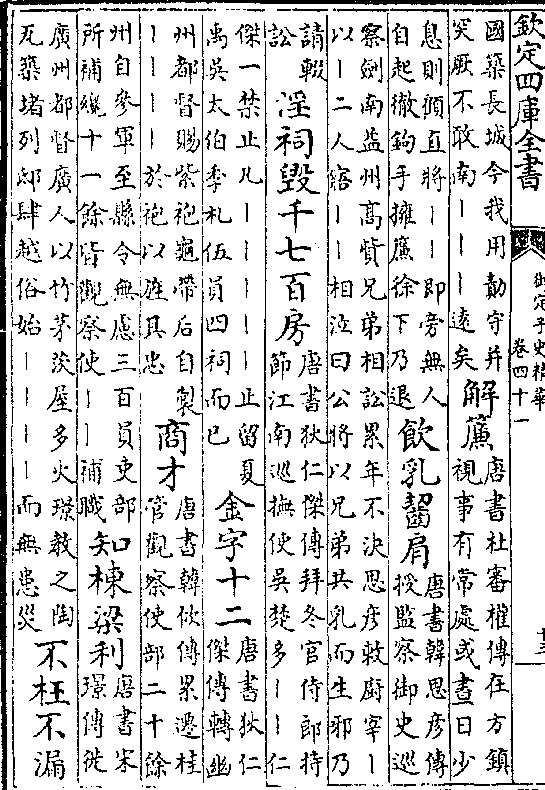 欽定四庫全書
御定子史精華
卷四十一
十三
國築長城今我用勣守并
突厥不敢南｜｜｜遠矣
解簾
唐書杜審權傳在方鎮
視事有常處或晝日少
息則顧直將｜｜即旁無人
自起徹鉤手擁簾徐下乃退
飲乳齧肩
唐書韓思彦傳
授監察御史巡
察劍南益州高貲兄弟相訟累年不決思彦敕廚宰｜
以｜二人寤｜｜相泣曰公將以兄弟共乳而生邪乃
請輟
訟
淫祠毁千七百房
唐書狄仁傑傳拜冬官侍郎持
節江南巡撫使吳楚多｜｜仁
傑一禁止凡｜｜｜｜｜止留夏
禹吳太伯季札伍員四祠而已
金字十二
唐書狄仁
傑傳轉幽
州都督賜紫袍龜帶后自製
｜｜｜｜於袍以旌其忠
商才
唐書韓佽傳累遷桂
管觀察使部二十餘
州自參軍至縣令無慮三百員吏部
所補纔十一餘皆觀察使｜｜補職
知棟梁利
唐書宋
璟傳徙
廣州都督廣人以竹茅茨屋多火璟教之陶
瓦築堵列邸肆越俗始｜｜｜｜而無患災
不枉不漏